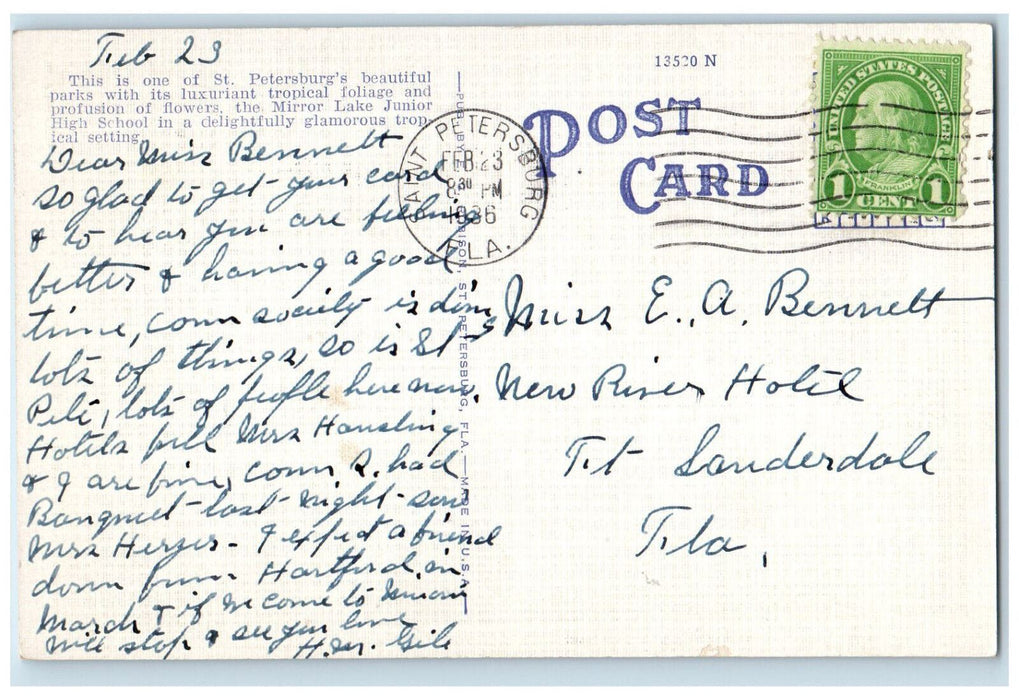 Feb 23
This is one of St. Petersburg's beautiful
parks with its luxuriant tropical foliage and
profusion of flowers, the Mirror Lake Junior
High School in a delightfully glamorous trop-
ical setting.
Dear Miss Bennett
so glad to get your card
& to hear you are feeling
better & having a good
time, conn society is doing
lots of things, so is St
Pete, lots of people here now.
Hotels full Mrs
& I are fine, conn S. had
Banquet last night - saw
Mrs - I expect a friend
down from Hartford in
March & if we come to Miami
will stop & see you love
H.M. Gile
PUB. BY ST. PETERSBURG, FLA. — MADE IN U.S.A.
13520 N
POST
CARD
SAINT PETERSBURG
FEB 23
8 30 PM
1936
FLA.
UNITED STATES POSTAGE
FRANKLIN
1 CENT 1
Miss E. A. Bennett
New River Hotel
Ft Lauderdale
Fla,